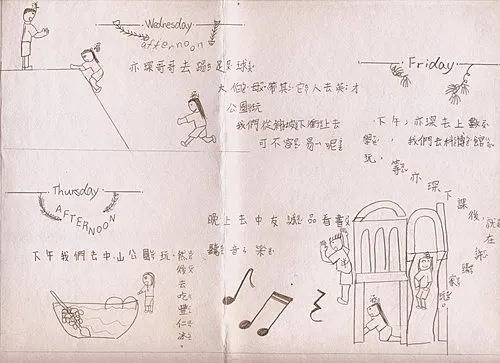 Wednesday
afternoon
亦琛哥哥去踢足球
大伯母帶其它人去英才
公園玩
我們從斜坡下衝上去
可不容易呢
Thursday
AFTERNOON
下午我們去中山公園玩,然
後
去
吃
豐
仁
冰。
晚上去中友誠品看書
聽音樂
Friday
下午,亦琛去上數
學,我們去科博館
玩,等亦琛下課後,
在
家
玩。